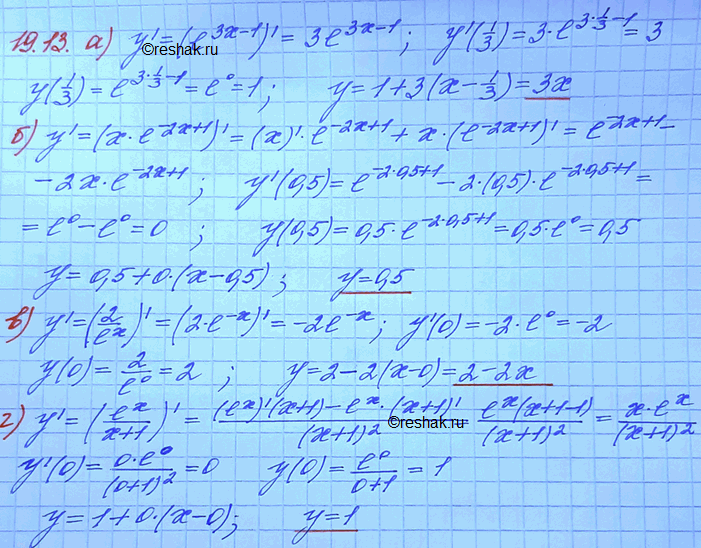 19.13. а) y' = (e^{3x-1})' = 3e^{3x-1}; y'(1/3) = 3·e^{3·1/3-1} = 3
©reshak.ru
y(1/3) = e^{3·1/3-1} = e^0 = 1; y = 1+3(x-1/3) = 3x
б) y' = (x·e^{-2x+1})' = (x)'·e^{-2x+1} + x·(e^{-2x+1})' = e^{-2x+1} -
- 2x·e^{-2x+1}; y'(0,5) = e^{-2·0,5+1} - 2·(0,5)·e^{-2·0,5+1} =
= e^0 - e^0 = 0; y(0,5) = 0,5·e^{-2·0,5+1} = 0,5·e^0 = 0,5
y = 0,5+0·(x-0,5); y = 0,5
в) y' = (2/e^x)' = (2·e^{-x})' = -2e^{-x}; y'(0) = -2·e^0 = -2
y(0) = 2/e^0 = 2; y = 2-2(x-0) = 2-2x
г) y' = (e^x/(x+1))' = ((e^x)'(x+1) - e^x·(x+1)')/(x+1)^2 = e^x(x+1-1)/(x+1)^2 = x·e^x/(x+1)^2
©reshak.ru
y'(0) = 0·e^0/(0+1)^2 = 0 y(0) = e^0/(0+1) = 1
y = 1+0·(x-0); y = 1